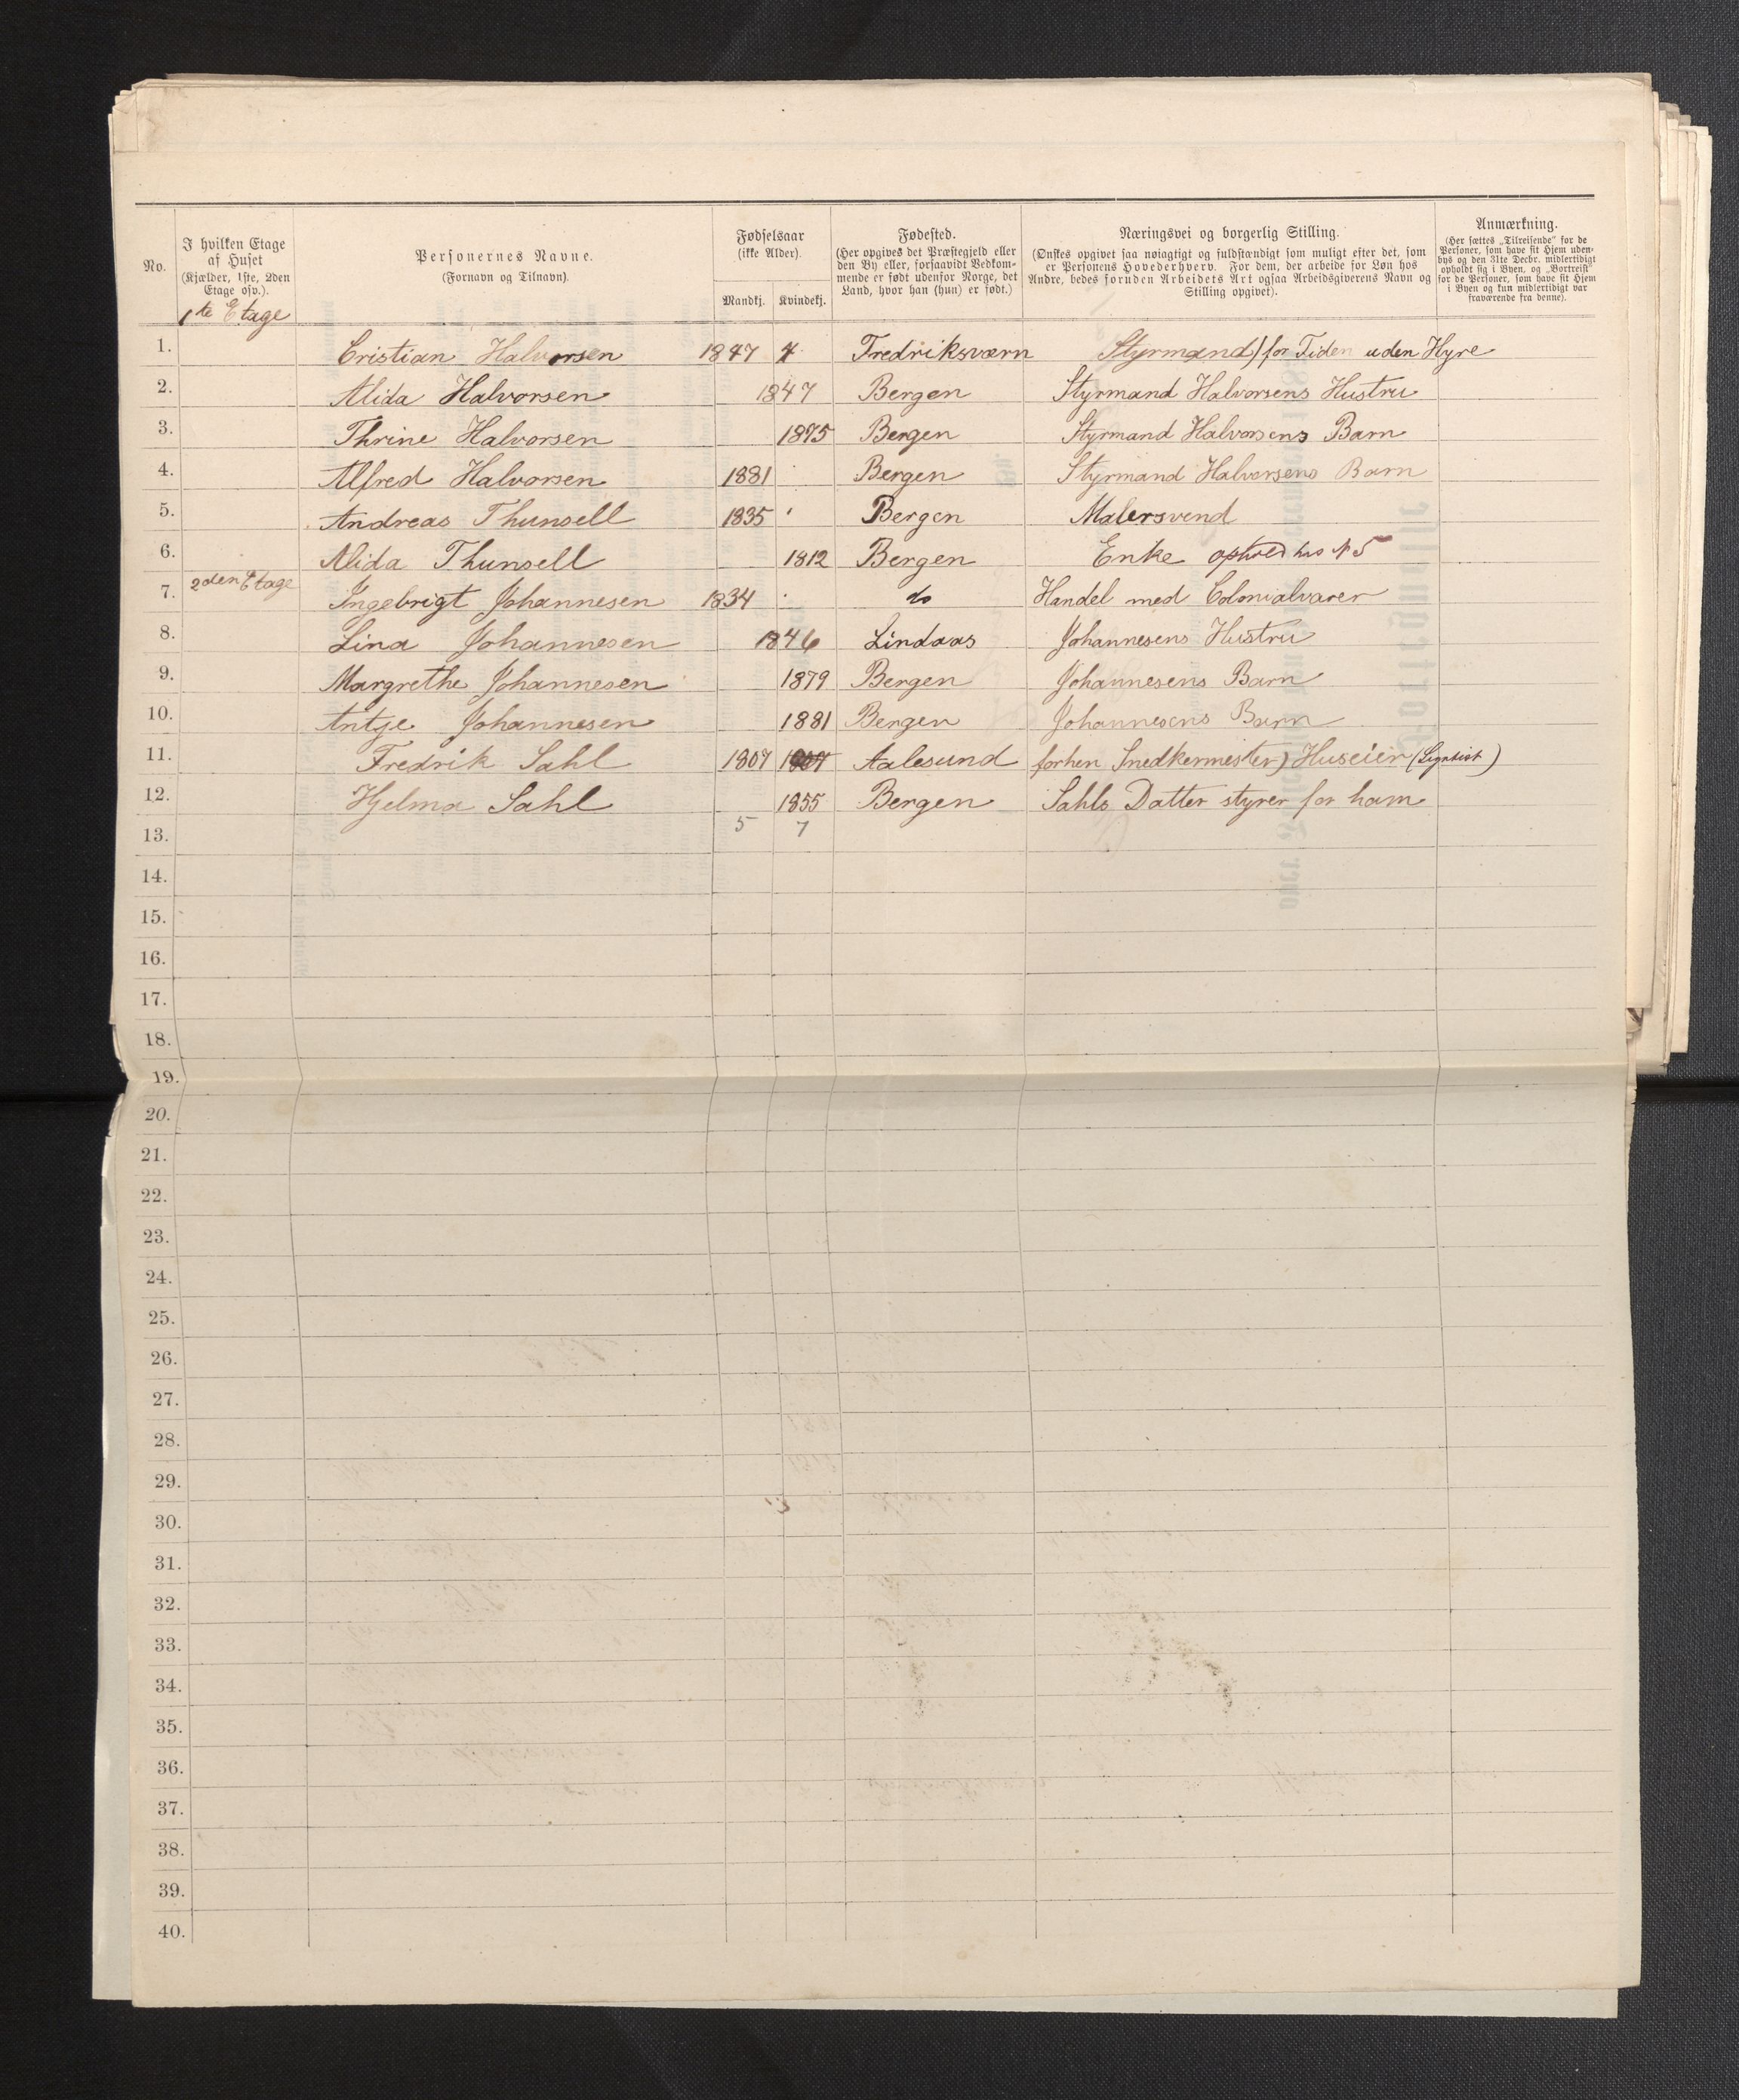 No.
I hvilken Etage
af Huset
(Kjælder, 1ste, 2den
Etage osv.).
1te Etage
Personernes Navne.
(Fornavn og Tilnavn).
Fødselsaar
(ikke Alder).
Mandkj. Kvindekj.
Fødested.
(Her opgives det Præstegjeld eller
den By eller, forsaavidt Vedkom-
mende er født udenfor Norge, det
Land, hvor han (hun) er født.)
Næringsvei og borgerlig Stilling.
(Ønskes opgivet saa nøiagtigt og fuldstændigt som muligt efter det, som
er Personens Hovederhverv. For dem, der arbeide for Løn hos
Andre, bedes foruden Arbeidets Art ogsaa Arbeidsgiverens Navn og
Stilling opgivet).
Anmærkning.
(Her sættes „Tilreisende“ for de
Personer, som have sit Hjem uden-
bys og den 31te Decbr. midlertidigt
opholdt sig i Byen, og „Bortreist“
for de Personer, som have sit Hjem
i Byen og kun midlertidigt var
fraværende fra denne).
1. Cristian Halvorsen 1847 Fredriksværn Styrmand) for Tiden uden Hyre
2. Alida Halvorsen 1847 Bergen Styrmand Halvorsens Hustru
3. Thrine Halvorsen 1875 Bergen Styrmand Halvorsens Barn
4. Alfred Halvorsen 1881 Bergen Styrmand Halvorsens Barn
5. Andreas Thunsell 1835 Bergen Malersvend
6. Alida Thunsell 1812 Bergen Enke hos N 5
7. 2den Etage Ingebrigt Johannesen 1834 do Handel med Colonialvarer
8. Lina Johannesen 1846 Lindaas Johannesens Hustru
9. Margrethe Johannesen 1879 Bergen Johannesens Barn
10. Antje Johannesen 1881 Bergen Johannesens Barn
11. Fredrik Sahl 1807 Aalesund forhen Snedkermester) Huseier
12. Hjelma Sahl 1855 Bergen Sahls Datter styrer for ham
13. 5 7
14.
15.
16.
17.
18.
19.
20.
21.
22.
23.
24.
25.
26.
27.
28.
29.
30.
31.
32.
33.
34.
35.
36.
37.
38.
39.
40.